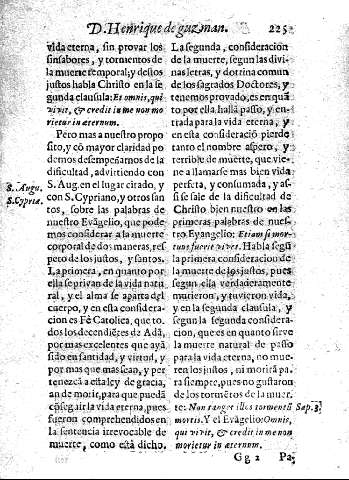 D. Henrique de guzman. 225
vida eterna, sin provar los
sinsabores, y tormentos de
la muerte temporal; y destos
justos habla Christo en la se
gunda clausula: Et omnis, qui
vivit, & credit in me non mo
rietur in æternum.
Pero mas a nuestro propo
sito, y cõ mayor claridad po
demos desempeñarnos de la
dificultad, advirtiendo con
S. Aug. en el lugar citado, y
con S. Cypriano, y otros san
tos, sobre las palabras de
nuestro Evãgelio, que pode
mos considerar a la muerte
corporal de dos maneras, res
peto de los justos, y santos.
La primera, en quanto por
ella se privan de la vida natu
ral, y el alma se aparta del
cuerpo, y en esta considera
cion es Fè Catolica, que to.
dos los decendiẽtes de Adã,
por mas excelentes que ayã
sido en santidad, y virtud, y
por mas que mas sean, y per
tenezcã a esta ley de gracia,
an de morir, para que puedã
cõseguir la vida eterna, pues
fueron comprehendidos en
la sentencia irrevocable de
muerte, como està dicho.
S. Augu.
S. Cypria.
La segunda, consideración
de la muerte, segun las divi-
nas letras, y dotrina comun
de los sagrados Doctores, y
tenemos provado, es en quã
to por ella hallã passo, y en-
trada para la vida eterna, y
en esta consideraciõ pierde
tanto el nombre aspero, y
terrible de muerte, que vie-
ne a llamarse mas bien vida
perfeta, y consumada, y as-
si se sale de la dificultad de
Christo bien nuestro en las
primeras palabras de nues-
tro Evangelio: Etiam si mor-
tuus fuerit vivet. Habla segũ
la primera consideracion de
la muerte de los justos, pues
segun ella verdaderamente
murieron, y tuvieron vida,
y en la segunda clausula, y
segun la segunda considera-
cion, que es en quanto sirve
la muerte natural de passo
para la vida eterna, no mue-
ren los justos, ni morirà pa
ra siempre, pues no gustaron
de los tormẽtos de la muer.
te: Non tanget illos tormentũ
mortis. Y el Evãgelio: Omnis,
qui vivit, & credit in me non
morietur in æternum.
Sap. 3.
Gg 2 Pa-